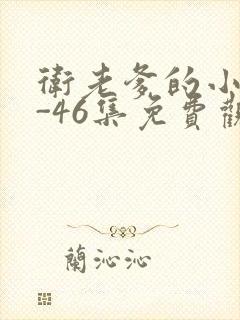 衛老爹的小
-46集免費觀
蘭沁沁